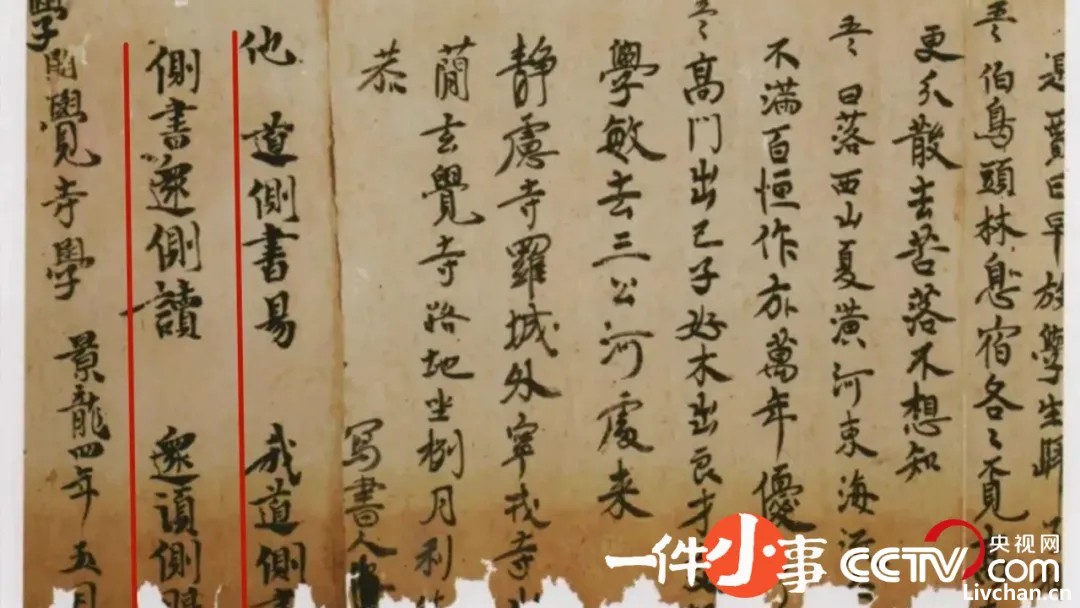 是賈日早放學生歸
五言 伯鳥頭林息宿各々覓
更分散去苦落不想知
五言 日落西山夏潢河東海流
不滿百恒作方萬年優
五言 高門出己子好木出良才
學敏去三公河處来
静慮寺羅城外寧戎寺
蕳玄覺寺路地坐捌月利
恭
寫書人
他道側書易 我道側書
側書還側讀 還須側眼
學開覺寺學 景龍四年五月
一件小事
CCTV.com
央视网
Livchan.cn